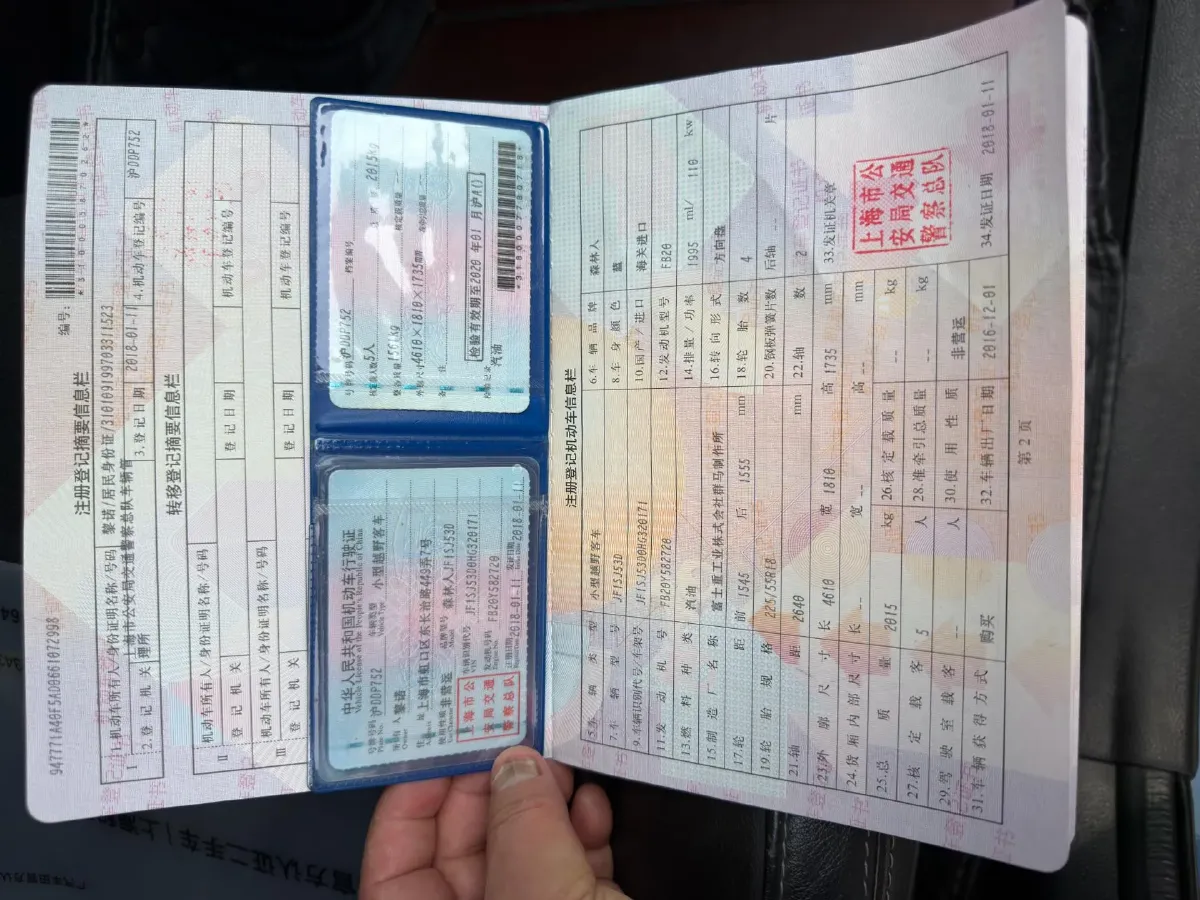 947771A40F5AD06610729​98
编号:
*310003870262*
注册登记摘要信息栏
I 1.机动车所有人/身份证明名称/号码 黎诺/居民身份证/310109199703311523
2.登记机关 上海市公安局交通警察总队车辆管理所 3.登记日期 2018-01-11 4.机动车登记编号 沪DDP752
转移登记摘要信息栏
II 机动车所有人/身份证明名称/号码
登记机关 登记日期 机动车登记编号
III 机动车所有人/身份证明名称/号码
登记机关 登记日期 机动车登记编号
中华人民共和国机动车行驶证
Vehicle License of the People's Republic of China
号牌号码 沪DDP752 车辆类型 小型越野客车
Plate No. Vehicle Type
所有人 黎诺
Owner
住址 上海市虹口区东长治路449弄7号
Address
使用性质 非营运 品牌型号 森林人JF1SJ53D
Use Character Model
上海市公安局交通警察总队
车辆识别代号 JF1SJ53D0HG320171
VIN
发动机号码 FB20Y582720
Engine No.
注册日期 2018-01-11 发证日期 2018-01-11
号牌号码 沪DDP752 档案编号
核定载人数 5人 2015kg
整备质量 核定载质量 --
外廓尺寸 4610×1810×1735mm 准牵引总质量
备注
检验有效期至2020年01月沪A()
检验记录
汽油
注册登记机动车信息栏
5.车辆类型 小型越野客车 6.车辆品牌 森林人
7.车辆型号 JF1SJ53D 8.车身颜色 蓝
9.车辆识别代号/车架号 JF1SJ53D0HG320171 10.国产/进口 海关进口
11.发动机号 FB20Y582720 12.发动机型号 FB20
13.燃料种类 汽油 14.排量/功率 1995 ml/ 110 kw
15.制造厂名称 富士重工业株式会社群马制作所 16.转向形式 方向盘
17.轮距 前 1545 后 1555 mm 18.轮胎数 4
19.轮胎规格 225/55R18 20.钢板弹簧片数 后轴 -- 片
21.轴距 2640 mm 22.轴数 2
23.外廓尺寸 长 4610 宽 1810 高 1735 mm 33.发证机关章
24.货厢内部尺寸 长 -- 宽 -- 高 -- mm
25.总质量 2015 kg 26.核定载质量 -- kg
27.核定载客 5 人 28.准牵引总质量 -- kg
29.驾驶室载客 -- 人 30.使用性质 非营运
31.车辆获得方式 购买 32.车辆出厂日期 2016-12-01 34.发证日期 2018-01-11
上海市公安局交通警察总队
第 2 页
官方认证二手车